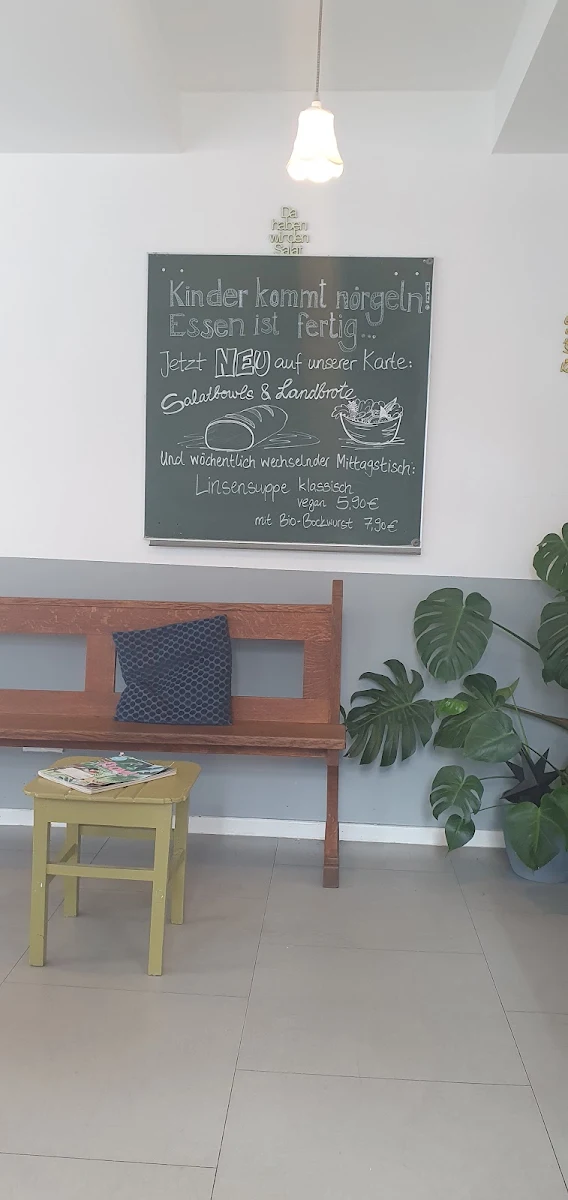 Da
haben
wir den
Salat
Kinder kommt nörgeln!
Essen ist fertig...
Jetzt NEU auf unserer Karte:
Salatbowls & Landbrote
Und wöchentlich wechselnder Mittagstisch:
Linsensuppe klassisch
vegan 5,90€
mit Bio-Bockwurst 7,90€